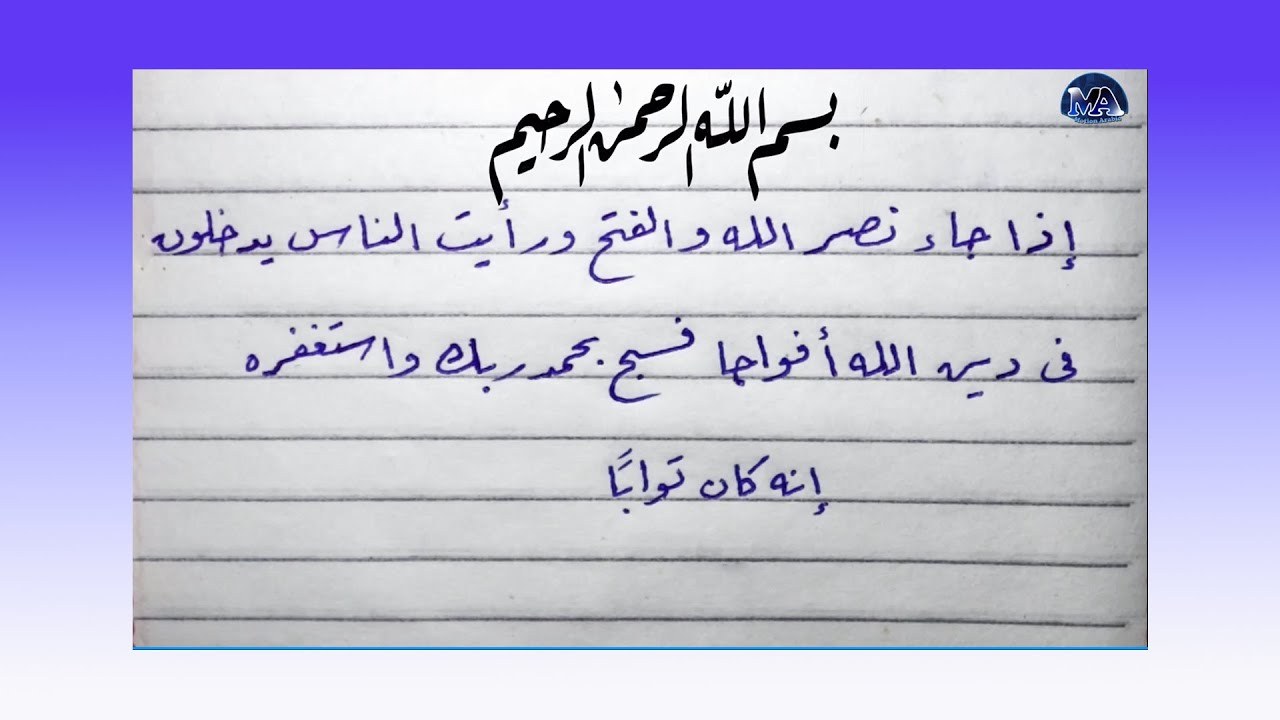 بسم الله الرحمن الرحيم
MA
Motion Arabic
إذا جاء نصر الله والفتح ورأيت الناس يدخلون
فى دين الله أفواجا فسبح بحمد ربك واستغفره
إنه كان توابًا